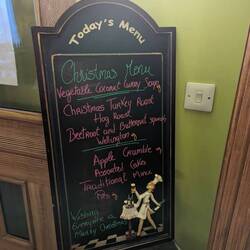 Today's Menu
Christmas Menu
Vegetable Coconut Curry Soup
Christmas Turkey Roast
Hog Roast
Beetroot and Butternut squash
Wellington
Apple Crumble
Assorted Cakes
Traditional Mince
Pies
Wishing
Everyone a
Merry Christmas